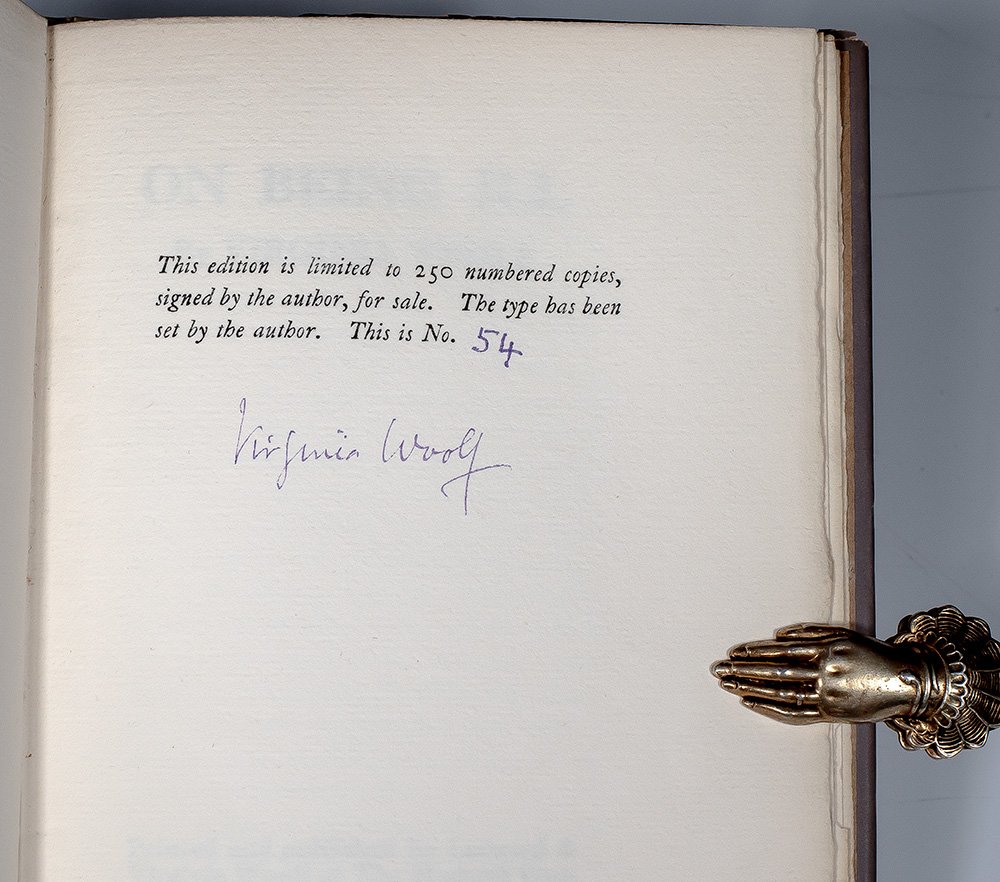 This edition is limited to 250 numbered copies,
signed by the author, for sale. The type has been
set by the author. This is No. 54
Virginia Woolf